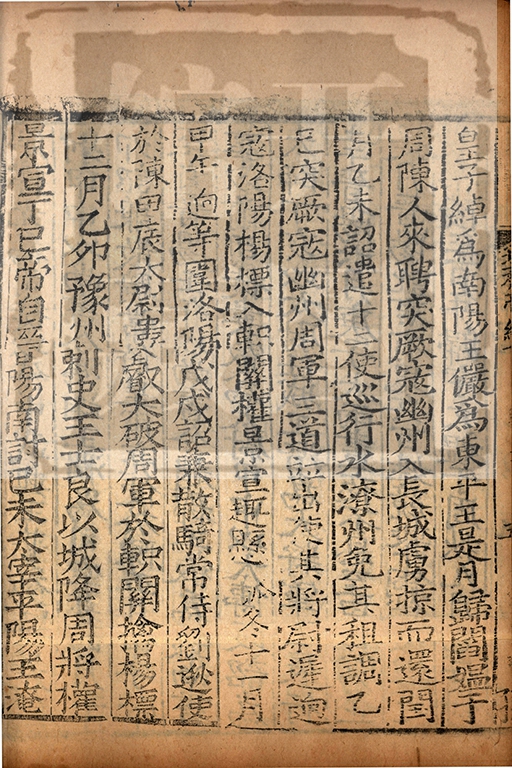 皇子綽爲南陽王儼爲東平王是月歸閻媪于
周陳人來聘突厥寇幽州入長城虜掠而還閏
月乙未詔遣十二使巡行水潦州免其租調乙
巳突厥寇幽州周軍三道並出使其將尉遲迥
寇洛陽楊標入軹關權景宣趣縣瓠冬十一月
甲午迥等圍洛陽戊戌詔兼散騎常侍劉逖使
於陳甲辰太尉婁叡大破周軍於軹關擒楊標
十二月乙卯豫州刺史王士良以城降周將權
景宣丁巳帝自晉陽南討己未太宰平陽王淹